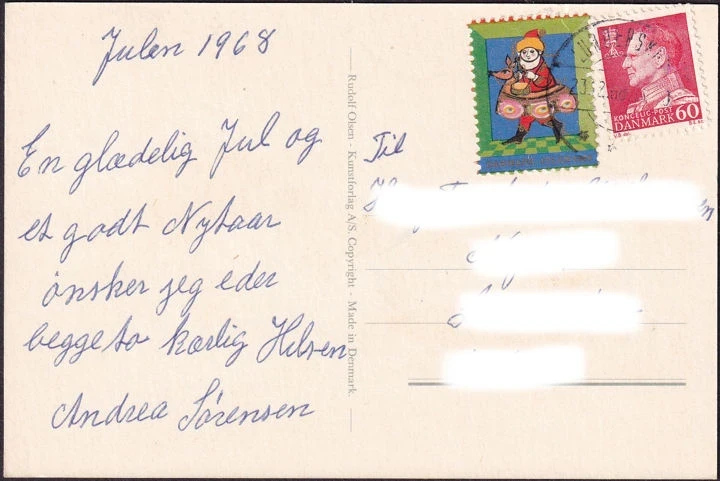 Julen 1968
En glædelig Jul og
et godt Nytaar
ønsker jeg eder
begge to kærlig Hilsen
Andrea Sørensen
Rudolf Olsen - Kunstforlag A/S. Copyright - Made in Denmark.
Til
KONGELIG POST
DANMARK 60